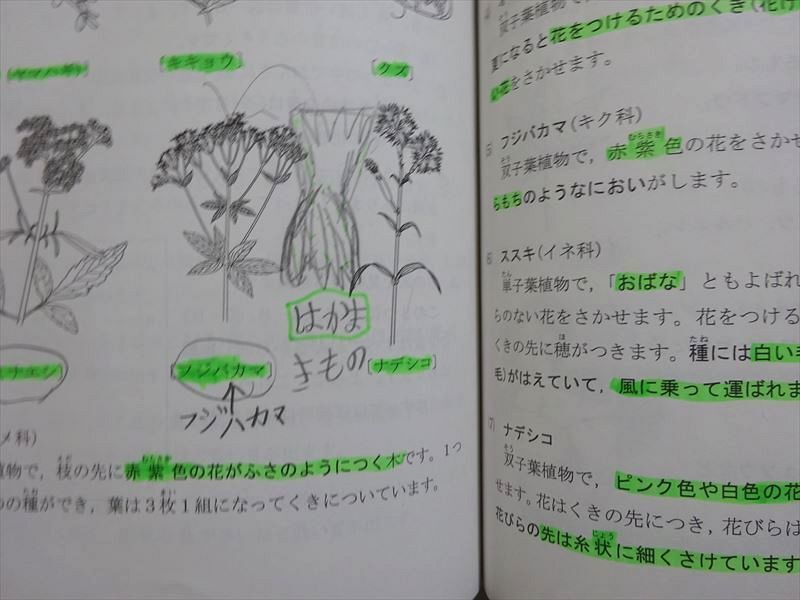 [キキョウ]
[クズ]
はかま
きもの
[フジバカマ]
[ナデシコ]
フジバカマ
植物で，枝の先に赤紫色の花がふさのようにつく木です。1つ
の種ができ，葉は3枚1組になってくきについています。
双子葉植物で，
夏になると花をつけるためのくき(花
をさかせます。
フジバカマ(キク科)
双子葉植物で，赤紫色の花をさかせ
らもちのようなにおいがします。
ススキ(イネ科)
単子葉植物で，「おばな」ともよばれ
らのない花をさかせます。花をつける
くきの先に穂がつきます。種には白い毛
毛)がはえていて，風に乗って運ばれま
(7) ナデシコ
双子葉植物で，ピンク色や白色の花
せます。花はくきの先につき，花びらは
花びらの先は糸状に細くさけています